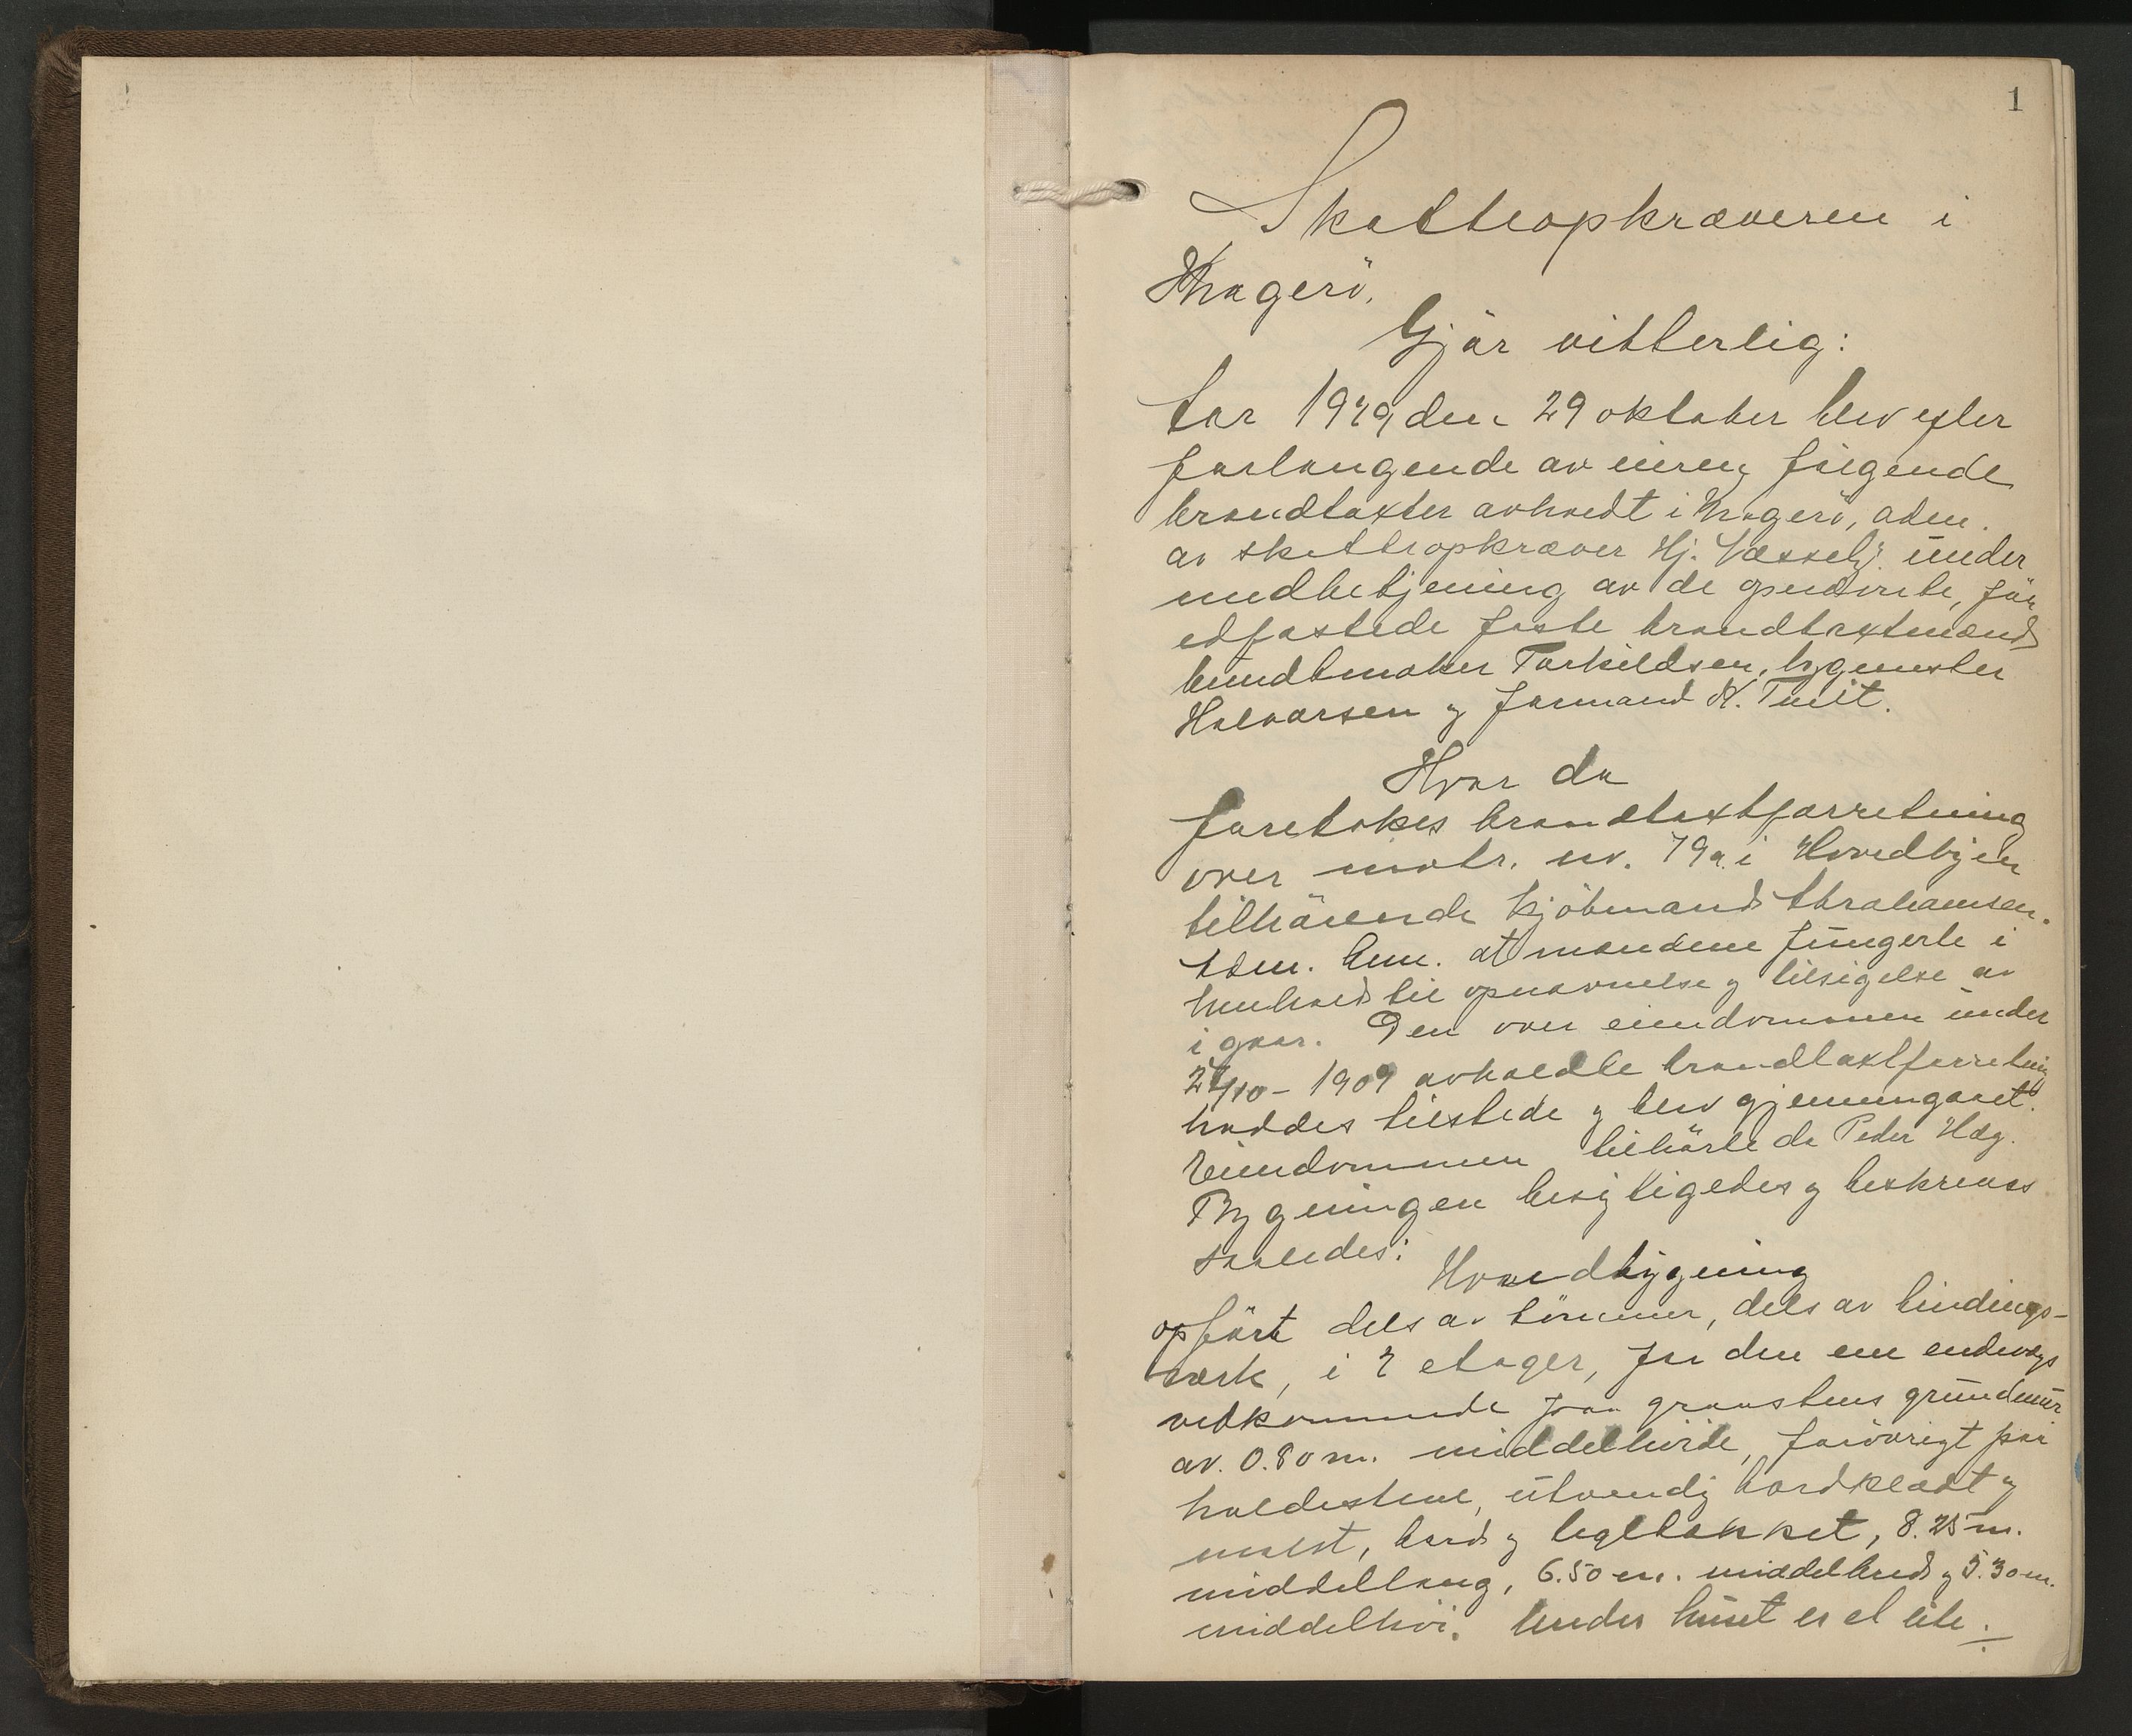 1
Skatteopkræveren i
Kragerö,
Gjör vitterlig:
Aar 1919, den 29 oktober blev efter
forlangende av eieren følgende
brandtakster avholdt i Kragerö, adm.
av skatteopkræver Hj. under
medbetjening av de opnævnte, før
edfæstede faste brandtaxtmænd
bundtmaker Torkildsen, bygmester
Halvorsen og formand K. Tveit.
Hvor da
foretokes brandtaxtforretning
over matr. nr. 79a i Hovedbyen
tilhörende kjöbmand Abrahamsen.
Adm. bem. at mændene fungerte i
henhold til opnævnelse og tilsigelse av
igaar. Den over eiendommen under
/10-1909 avholdte brandtaxtforretning
haddes tilstede og blev gjennemgaaet.
Eiendommen tilhörte da Peder Hæg.
Bygningen besigtigedes og beskrives
saaledes:
Hovedbygning
opfört dels av tömmer, dels av bindings-
værk, i 2 etager, for den ene endevægs
vedkommende paa graastens grundmur
av 0.80 m. middelhöide, forövrigt paa
holdestene, utvendig bordklædt og
malt, bord og tegltækket, 8.25 m.
middellang, 6.50 m. middelbred og 5.30 m.
middelhöi. Under huset er et lite